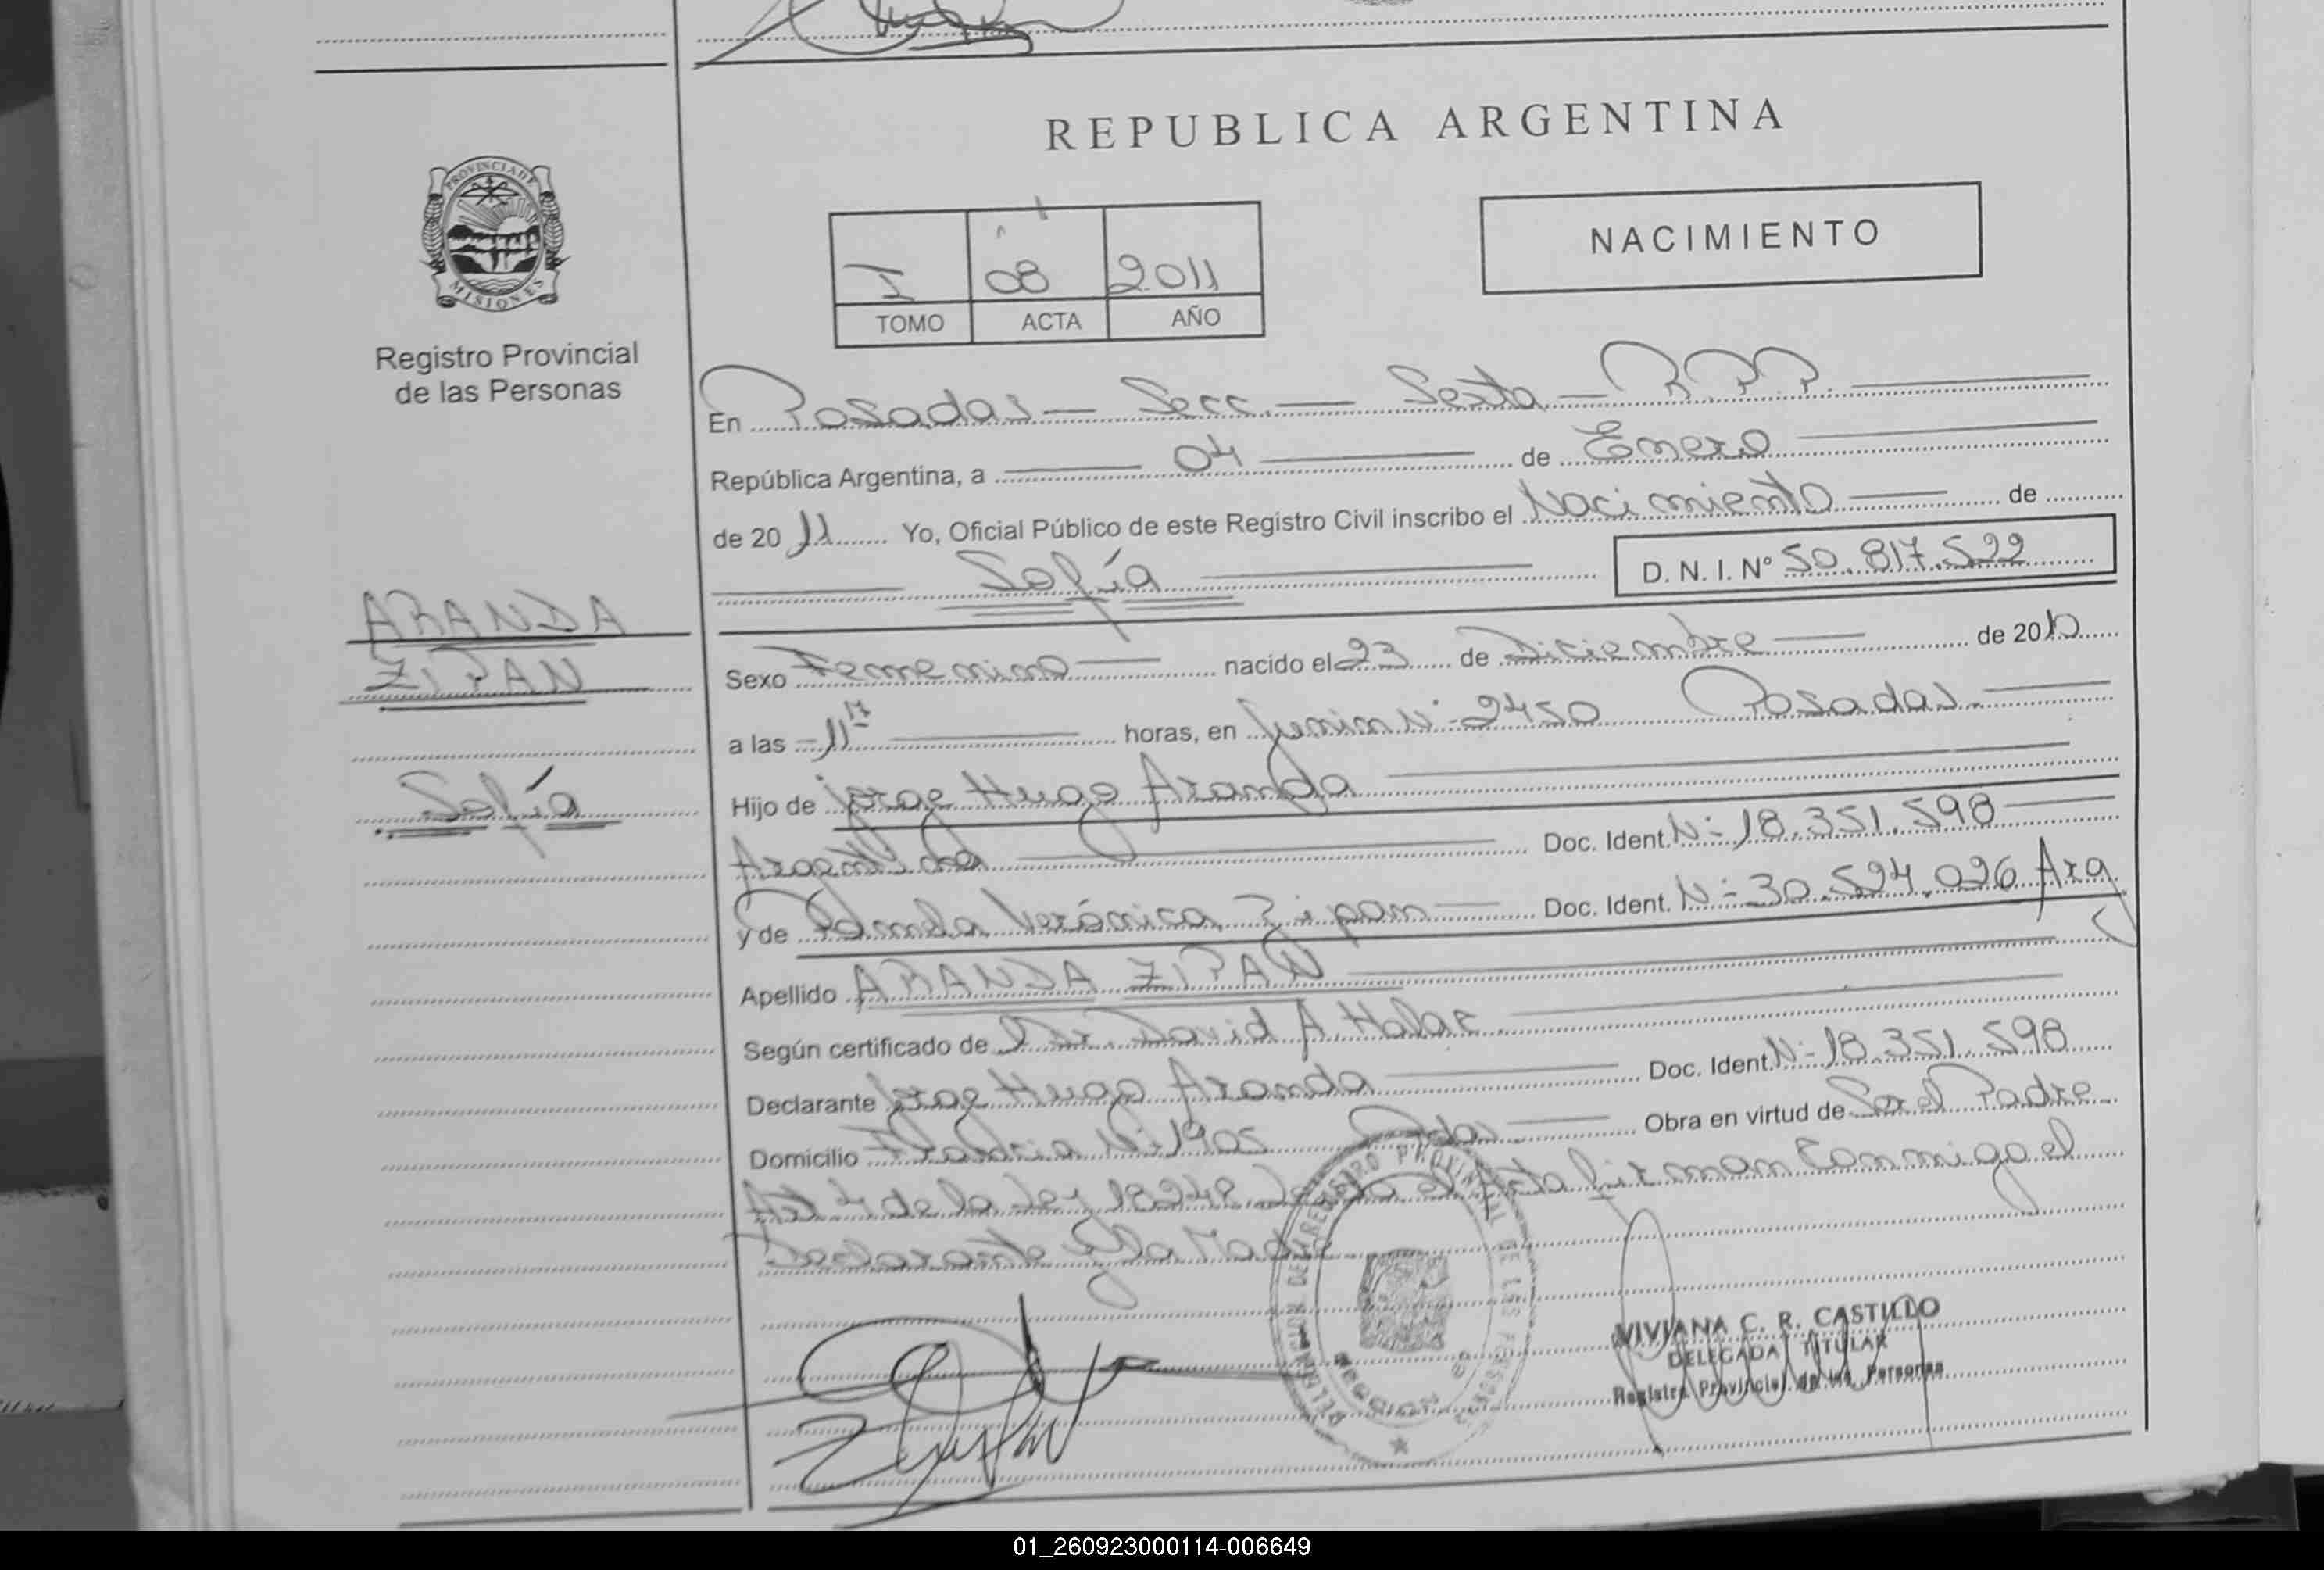 REPUBLICA ARGENTINA
PROVINCIA DE
MISIONES
Registro Provincial
de las Personas
NACIMIENTO
I 08 2011
TOMO ACTA AÑO
En Posadas - Secc. - Sexta - R.P.P.
República Argentina, a 04 de Enero
de 2011 Yo, Oficial Público de este Registro Civil inscribo el Nacimiento de
Sofía D. N. I. N° 50.817.522
ARANDA
ZIPAN
Sofía
Sexo Femenino nacido el 23 de Diciembre de 2010
a las 11 horas, en Junin N° 2450 Posadas.
Hijo de Jorge Hugo Aranda
Doc. Ident. N° 18.351.598
y de Verónica Zipan Doc. Ident. N° 30.524.026 Arg
Apellido ARANDA ZIPAN
Según certificado de David A. Halac
Declarante Jorge Hugo Aranda Doc. Ident. N° 18.351.598
Domicilio Obra en virtud de Ser el Padre
Art 4 de la Ley 18248 firman conmigo el
Declarante
VIVIANA C. R. CASTILLO
DELEGADA TITULAR
Registro Provincial de las Personas
01_260923000114-006649